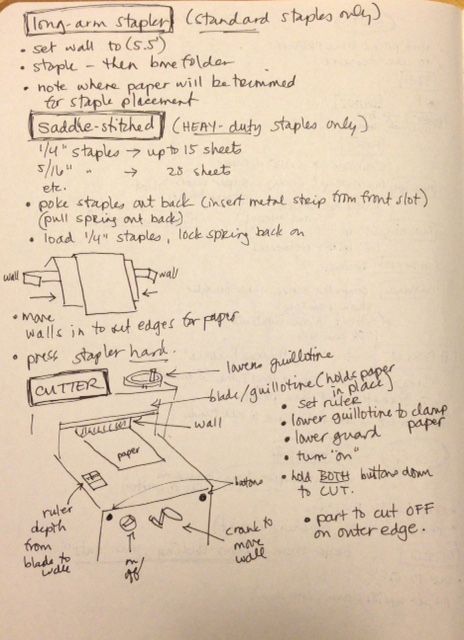 long-arm stapler (standard staples only)
• set wall to (5.5")
• staple – then bone folder
• note where paper will be trimmed
for staple placement
Saddle-stitched (HEAY-duty staples only)
1/4" staples → up to 15 sheets
5/16" " → 28 sheets
etc.
• poke staples out back (insert metal strip from front slot)
(pull spring out back)
• load 1/4" staples, lock spring back on
wall
wall
• move
walls in to set edges for paper
• press stapler hard.
CUTTER
lowers guillotine
blade/guillotine (holds paper
in place)
wall
paper
• set ruler
• lower guillotine to clamp
paper
• lower guard
• turn "on"
• hold BOTH buttons down
to CUT.
• part to cut OFF
on outer edge.
buttons
ruler
depth
from
blade to
wall
on
off
crank to
move
wall